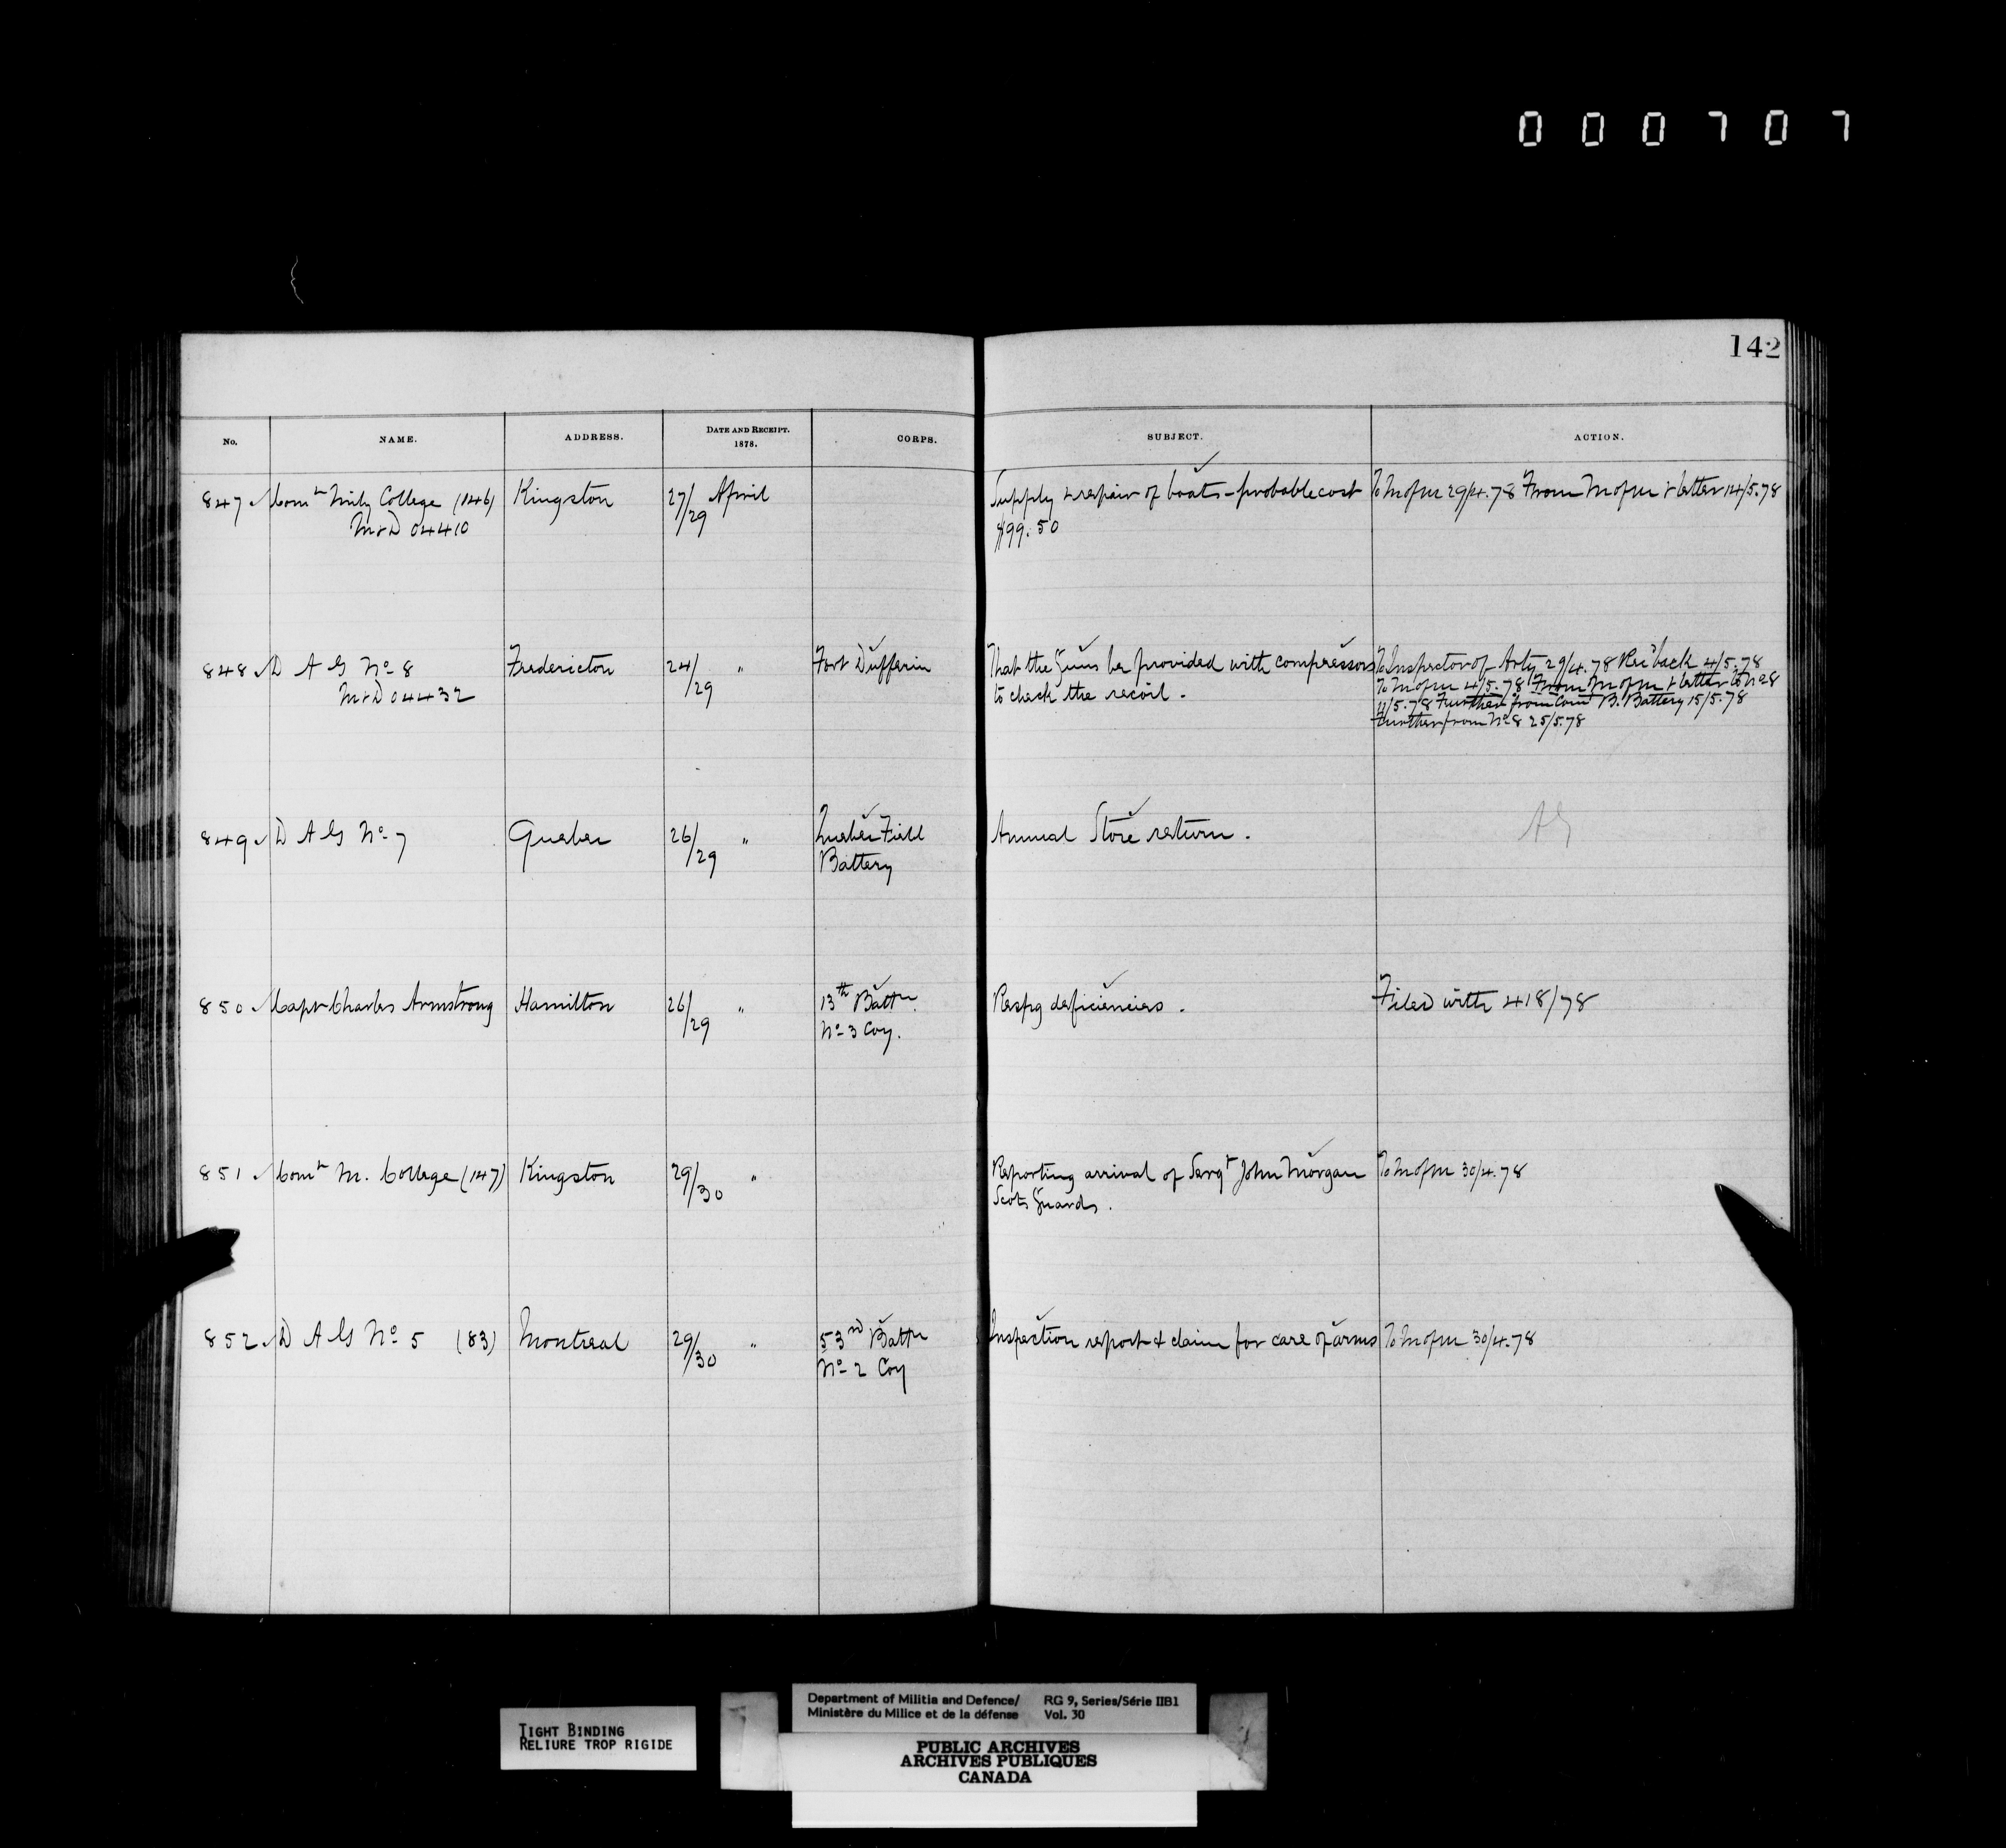 000707
142
No. NAME. ADDRESS. DATE AND RECEIPT. 1878. CORPS. SUBJECT. ACTION.
847 Comt Mily College (146) Kingston 27/29 April Supply & repair of boats - probable cost To M of M 29/4.78 From M of M & letter 14/5.78
M&D 04410 $99.50
848 D A G No 8 Fredericton 24/29 " Fort Dufferin That the Guns be provided with compressors To Inspector of Arty 29/4.78 Rec'd back 4/5.78
M&D 04432 to check the recoil. To M of M 4/5.78 From M of M & letter to No 8
11/5.78 Further from Com B. Battery 15/5.78
Further from No 8 25/5.78
849 D A G No 7 Quebec 26/29 " Quebec Field Annual Store return. AG
Battery
850 Capt Charles Armstrong Hamilton 26/29 " 13th Battn. Respg deficiencies. Filed with 418/78
No 3 Coy.
851 Comt M. College (147) Kingston 29/30 " Reporting arrival of Sergt John Morgan To M of M 30/4.78
Scots Guards.
852 D A G No 5 (83) Montreal 29/30 " 53rd Battn Inspection report & claim for care of arms To M of M 30/4.78
No 2 Coy
TIGHT BINDING
RELIURE TROP RIGIDE
Department of Militia and Defence/ RG 9, Series/Série IIB1
Ministère du Milice et de la défense Vol. 30
PUBLIC ARCHIVES
ARCHIVES PUBLIQUES
CANADA